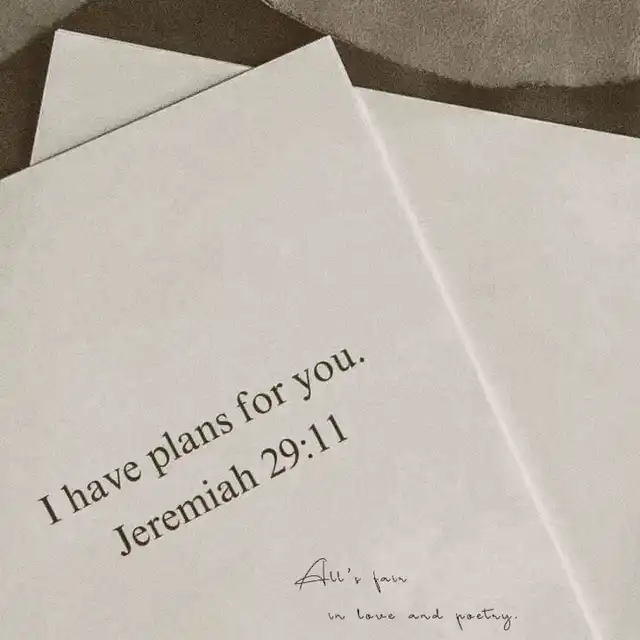 I have plans for you.
Jeremiah 29:11
All's fair
in love and poetry.